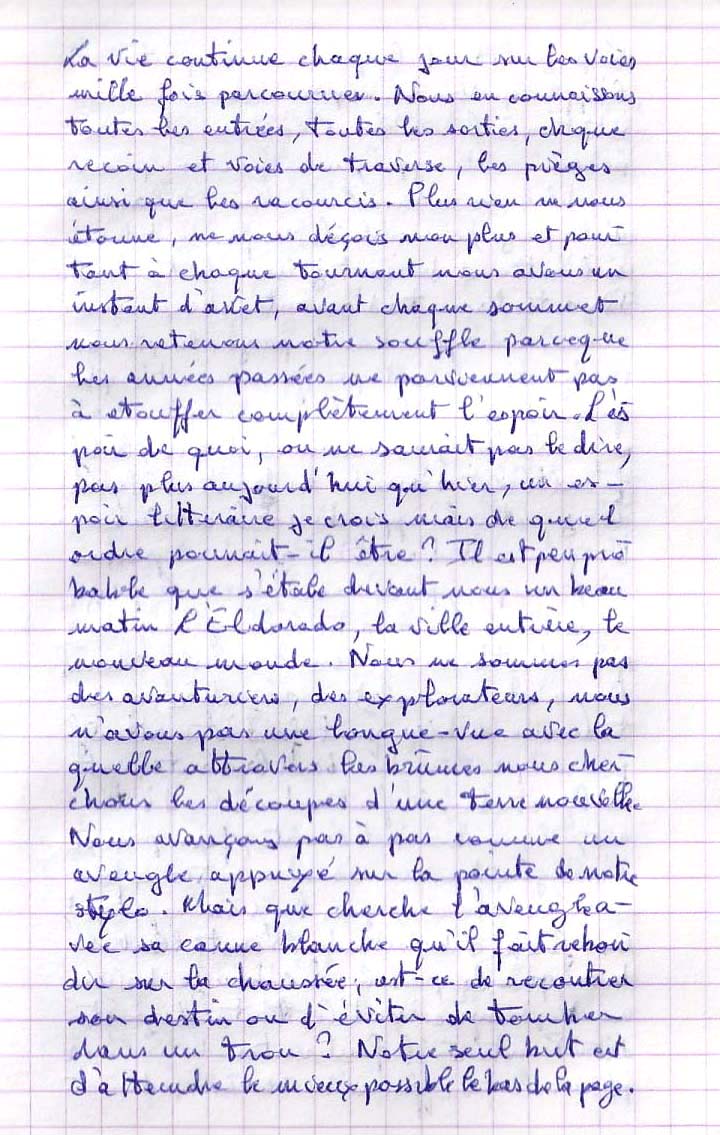 La vie continue chaque jour sur les voies
mille fois parcourues. Nous en connaissons
toutes les entrées, toutes les sorties, chque
recoin et voies de traverse, les pièges
ainsi que les racourcis. Plus rien ne nous
étonne, ne nous déçois non plus et pour
tant à chaque tournant nous avons un
instant d'arret, avant chaque sommet
nous retenons notre souffle parceque
les années passées ne parviennent pas
à etouffer complètement l'espoir. L'es
poir de quoi, on ne saurait pas le dire,
pas plus aujourd'hui qu'hier, un es-
poir litteraire je crois mais de quel
ordre pourrait-il être? Il est peu pro
bable que s'étale devant nous un beau
matin l'Eldorado, la ville entière, le
nouveau monde. Nous ne sommes pas
des avanturiers, des explorateurs, nous
n'avons pas une longue-vue avec la
quelle attravers les brûmes nous cher
chons les découpes d'une terre nouvelle.
Nous avançons pas à pas comme un
aveugle, appuyé sur la pointe de notre
stylo. Mais que cherche l'aveugle a-
vec sa canne blanche qu'il fait rebon
dir sur la chaussée, est-ce de recontrer
son destin ou d'éviter de tomber
dans un trou? Notre seul but est
d'atteindre le mieux possible le bas de la page.